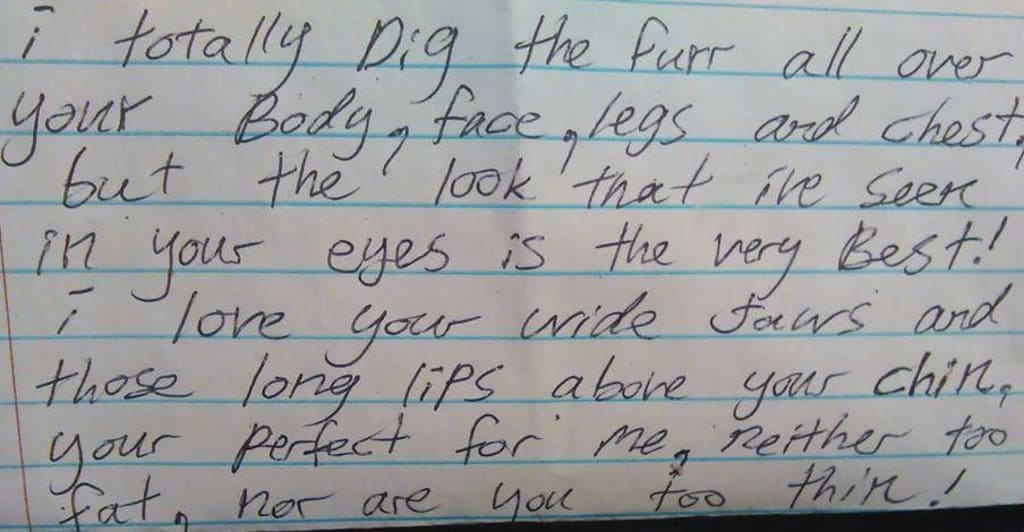 i totally Dig the furr all over
your Body, face, legs and chest,
but the look that i've seen
in your eyes is the very Best!
i love your wide Jaws and
those long lips above your chin,
your perfect for me, neither too
fat, nor are you too thin!